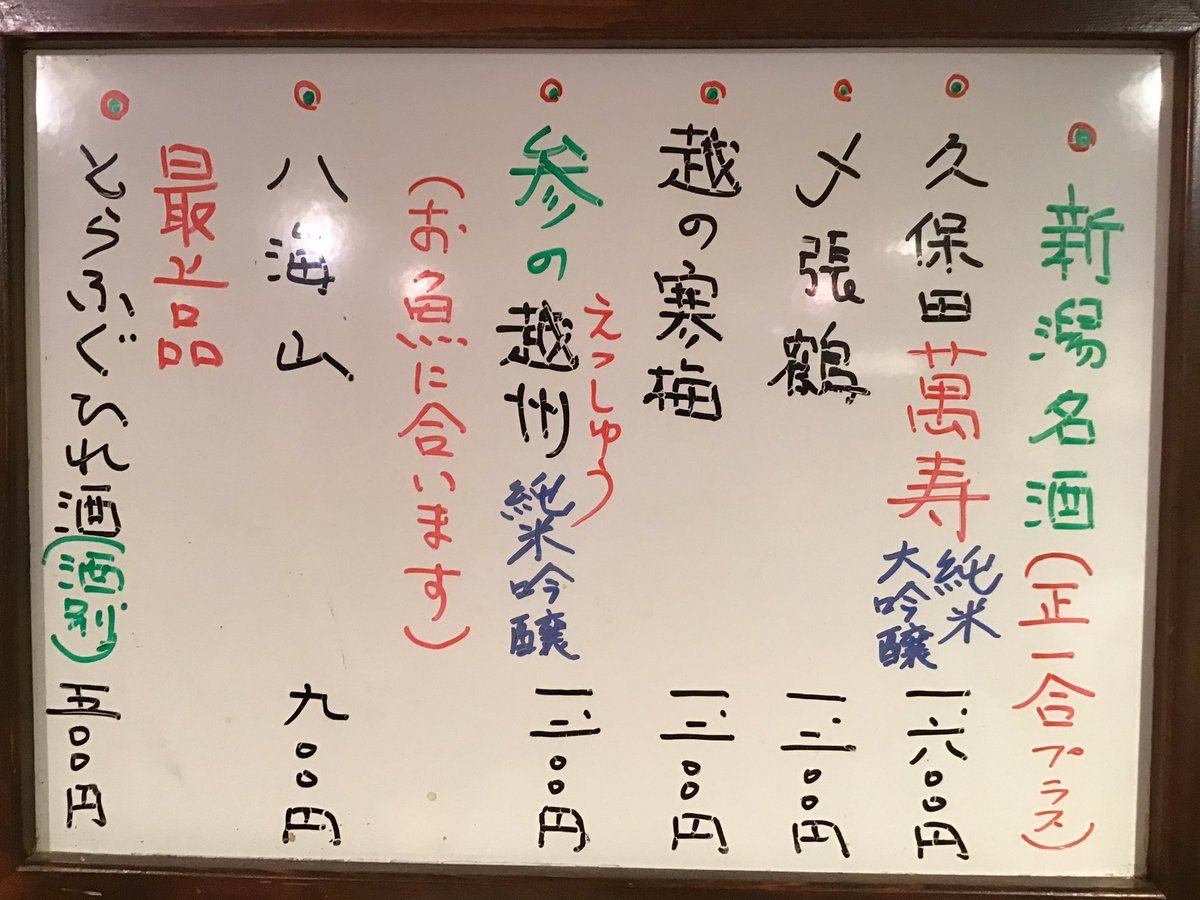 新潟名酒(正一合プラス)
久保田萬寿 純米大吟醸 一、六〇〇円
〆張鶴 一、二〇〇円
越の寒梅 一、二〇〇円
えっしゅう
参の越州 純米吟醸 一、二〇〇円
(お魚に合います)
八海山 九〇〇円
最上品
とらふぐひれ酒(酒別) 五〇〇円